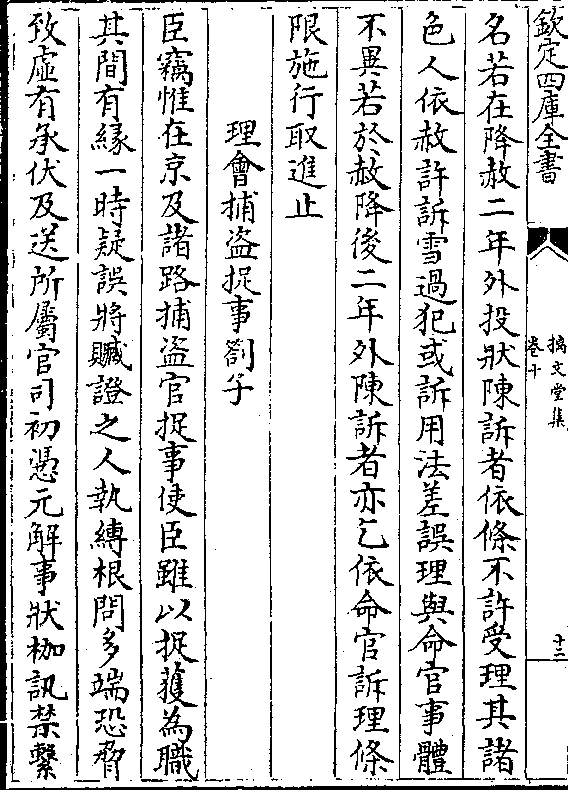 欽定四庫全書
摛文堂集
卷十
十二
名若在降赦二年外投狀陳訴者依條不許受理其諸
色人依赦許訴雪過犯或訴用法差誤理與命官事體
不異若於赦降後二年外陳訴者亦乞依命官訴理條
限施行取進止
理會捕盗捉事劄子
臣竊惟在京及諸路捕盗官捉事使臣雖以捉獲為職
其間有緣一時疑誤將贓證之人執縛根問多端恐脅
致虛有承伏及送所屬官司初憑元解事狀枷訊禁繫